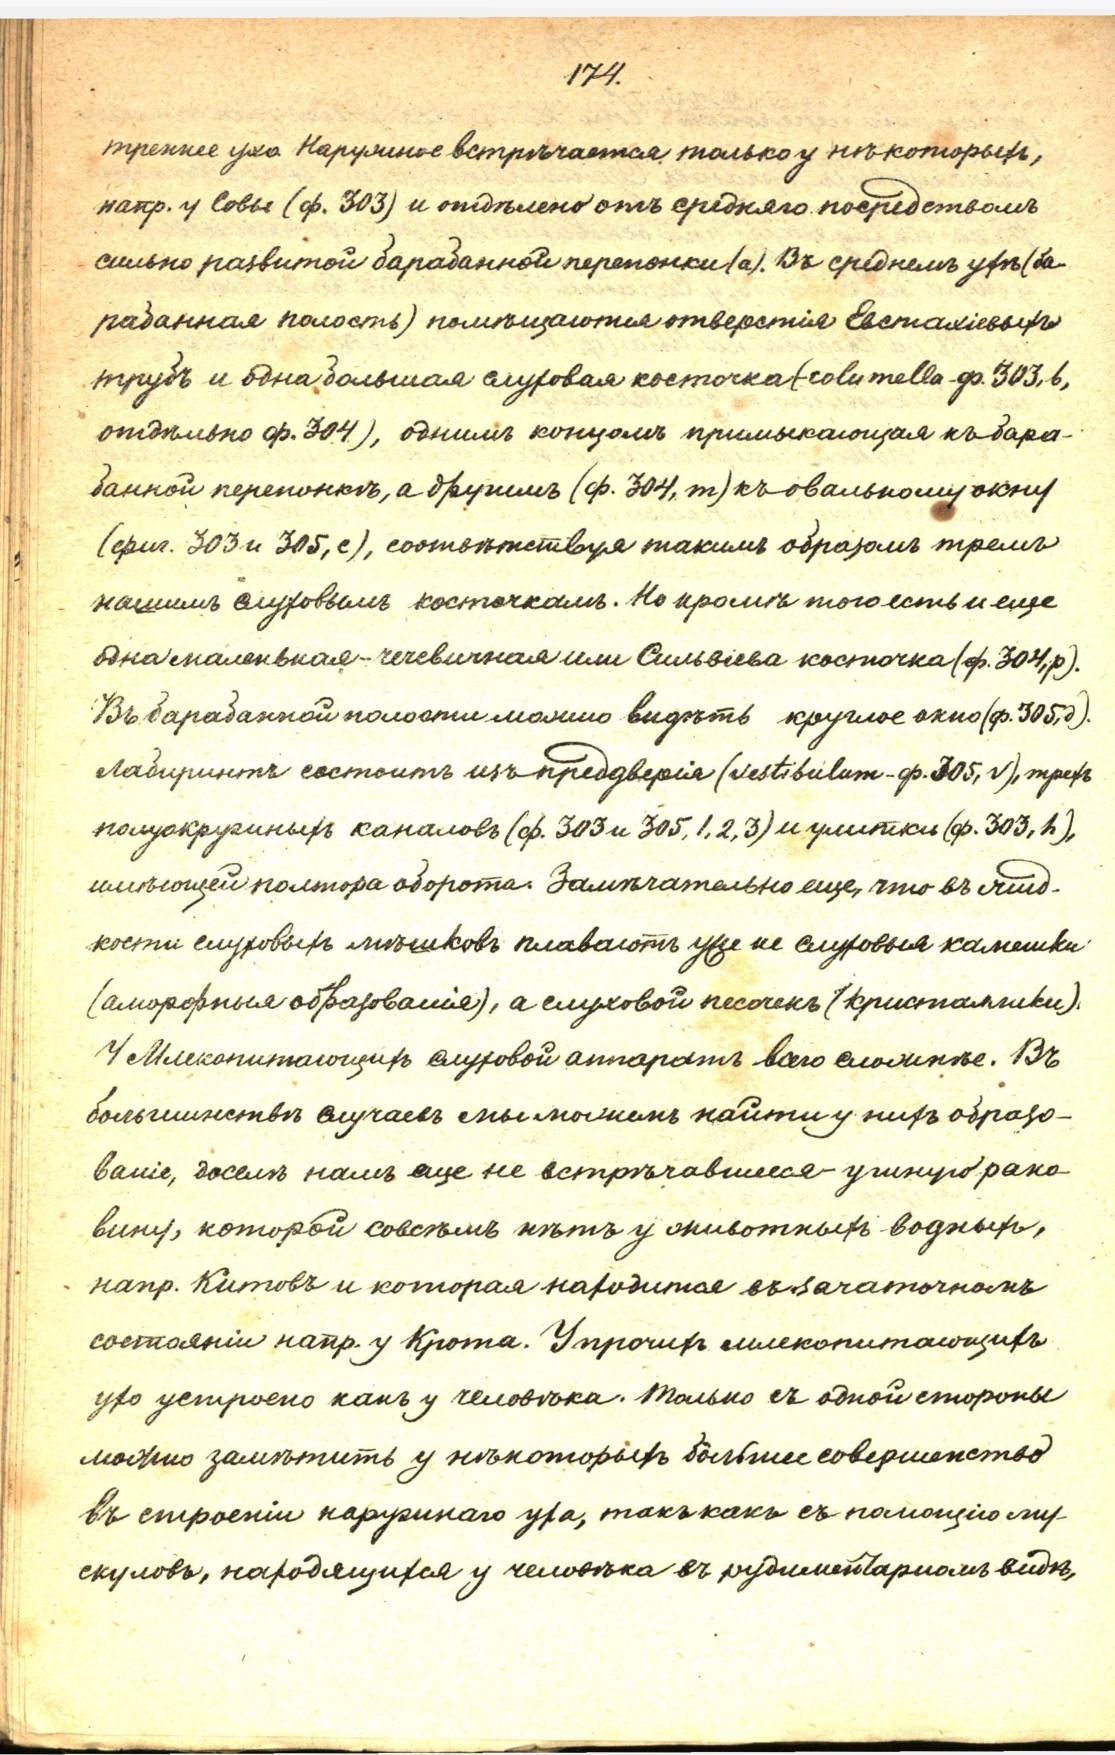 174.
треннее ухо Наружное встрѣчается только у нѣкоторыхъ,
напр. у Совы (ф. 303) и отдѣлено отъ средняго посредствомъ
сильно развитой барабанной перепонки (а). Въ среднемъ ухѣ (ба-
рабанная полость) помѣщаются отверстія Евстахіевыхъ
трубъ и одна большая слуховая косточка (columella-ф. 303, b,
отдѣльно ф. 304), однимъ концомъ примыкающая къ бара-
банной перепонкѣ, а другимъ (ф. 304, m) къ овальному окну
(фиг. 303 и 305, c), соотвѣтствуя такимъ образомъ тремъ
нашимъ слуховымъ косточкамъ. Но кромѣ того есть и еще
одна маленькая - чечевичная или Сильвіева косточка (ф. 304, p).
Въ барабанной полости можно видѣть круглое окно (ф. 305, д).
Лабиринтъ состоитъ изъ преддверія (vestibulum - ф. 305, v), трехъ
полуокружныхъ каналовъ (ф. 303 и 305, 1, 2, 3) и улитки (ф. 303, h),
имѣющей полтора оборота. Замѣчательно еще, что въ жид-
кости слуховыхъ мѣшковъ плаваютъ уже не слуховыя камешки
(аморфныя образованія), а слуховой песочекъ (кристаллики).
У Млекопитающихъ слуховой аппаратъ всего сложнѣе. Въ
большинствѣ случаевъ мы можемъ найти у нихъ образо-
ваніе, доселѣ намъ еще не встрѣчавшееся - ушную рако-
вину, которой совсѣмъ нѣтъ у животныхъ водныхъ,
напр. Китовъ и которая находится въ зачаточномъ
состояніи напр. у Крота. У прочихъ млекопитающихъ
ухо устроено какъ у человѣка. Только съ одной стороны
можно замѣтить у нѣкоторыхъ большее совершенство
въ строеніи наружнаго уха, такъ какъ съ помощію му-
скуловъ, находящихся у человѣка въ рудиментарномъ видѣ,